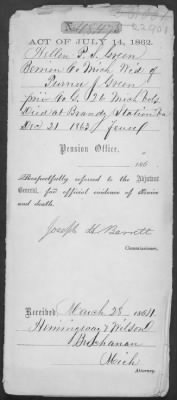 ACT OF JULY 14, 1862.
Hellen P. S. Green
Berrien Co Mich Wid. of
J Green
priv Co G. 26 Mich Vols.
Died at Brandy Station Va
Dec 21 1863 fever
Pension Office,
186
Respectfully referred to the Adjutant
General, for official evidence of service
and death.
Joseph H Barrett
Commissioner.
Received March 28 1864
Hemingway & Wilson
Buchanan
Mich
Attorney.